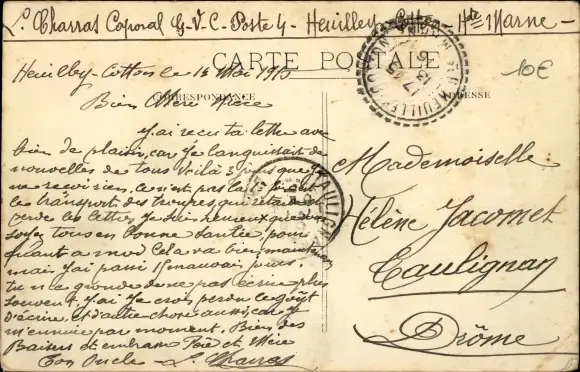 L. Charras Caporal G-V-C- Poste 4 - Heuilley-Cotton - Hte Marne -
CARTE POSTALE
10€
Heuilley-Cotton le 13 Mai 1915
CORRESPONDANCE
ADRESSE
Bien Chère Nièce
J'ai recu ta lettre avec
bien de plaisir, car je languissait de
nouvelles de tous Voilà 3 jours que je
ne recoi rien, ce n'est pas la
le transport des troupes, qui retarde
les lettres, Je suis heureux que
soyez tous en bonne santée, pour
quant a moi Cela va bien,
mais j'ai passé 15 mauvais jours.
tu me gronde de ne pas écrire plus
souvent, J'ai je crois perdu le goût
d'écrire et d'autre chose aussi, car je
m'ennuie par moment. Bien des
Baisers et embrasse Père et Mère
Ton Oncle - L. Charras
Mademoiselle
Hélène Jacomet
Taulignan
Drôme